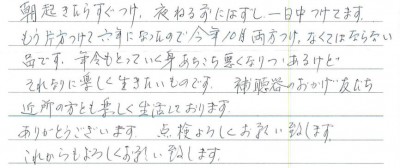 朝起きたらすぐつけ、夜ねる前にはずし一日中つけてます。
もう片方つけて六年になったので今年10月両方つけ、なくてはならない
品です。年令もとっていく身あちこち悪くなりつつあるけど
それなりに楽しく生きたいものです。 補聴器のおかげ友だち
近所の方とも楽しく生活しております。
ありがとうございます 点検よろしくお願い致します。
これからもよろしくお願い致します。